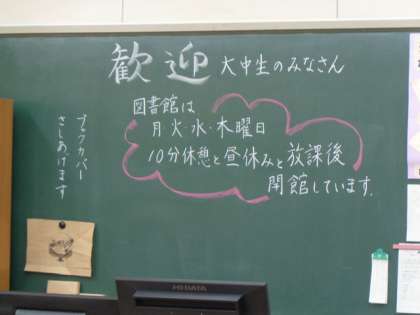 歓迎 大中生のみなさん
図書館は
月・火・水・木曜日
10分休憩と昼休みと放課後
開館しています。
ブックカバー
さしあげます
IIYAMA